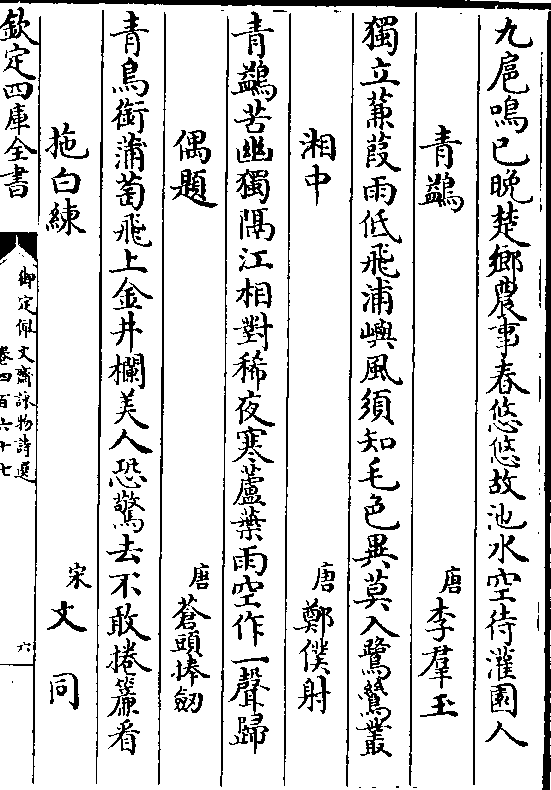 九扈鳴已晚楚鄉農事春悠悠故池水空待灌園人
青鷁 唐 李羣玉
獨立蒹葭雨低飛浦嶼風須知毛色異莫入鷺鶿叢
湘中 唐 鄭僕射
青鷁苦幽獨隔江相對稀夜寒蘆葉雨空作一聲歸
偶題 唐 蒼頭捧劒
青鳥銜蒲萄飛上金井欄美人恐驚去不敢捲簾看
拖白練 宋 文同
欽定四庫全書 御定佩文齋詠物詩選 卷四百六十七 六